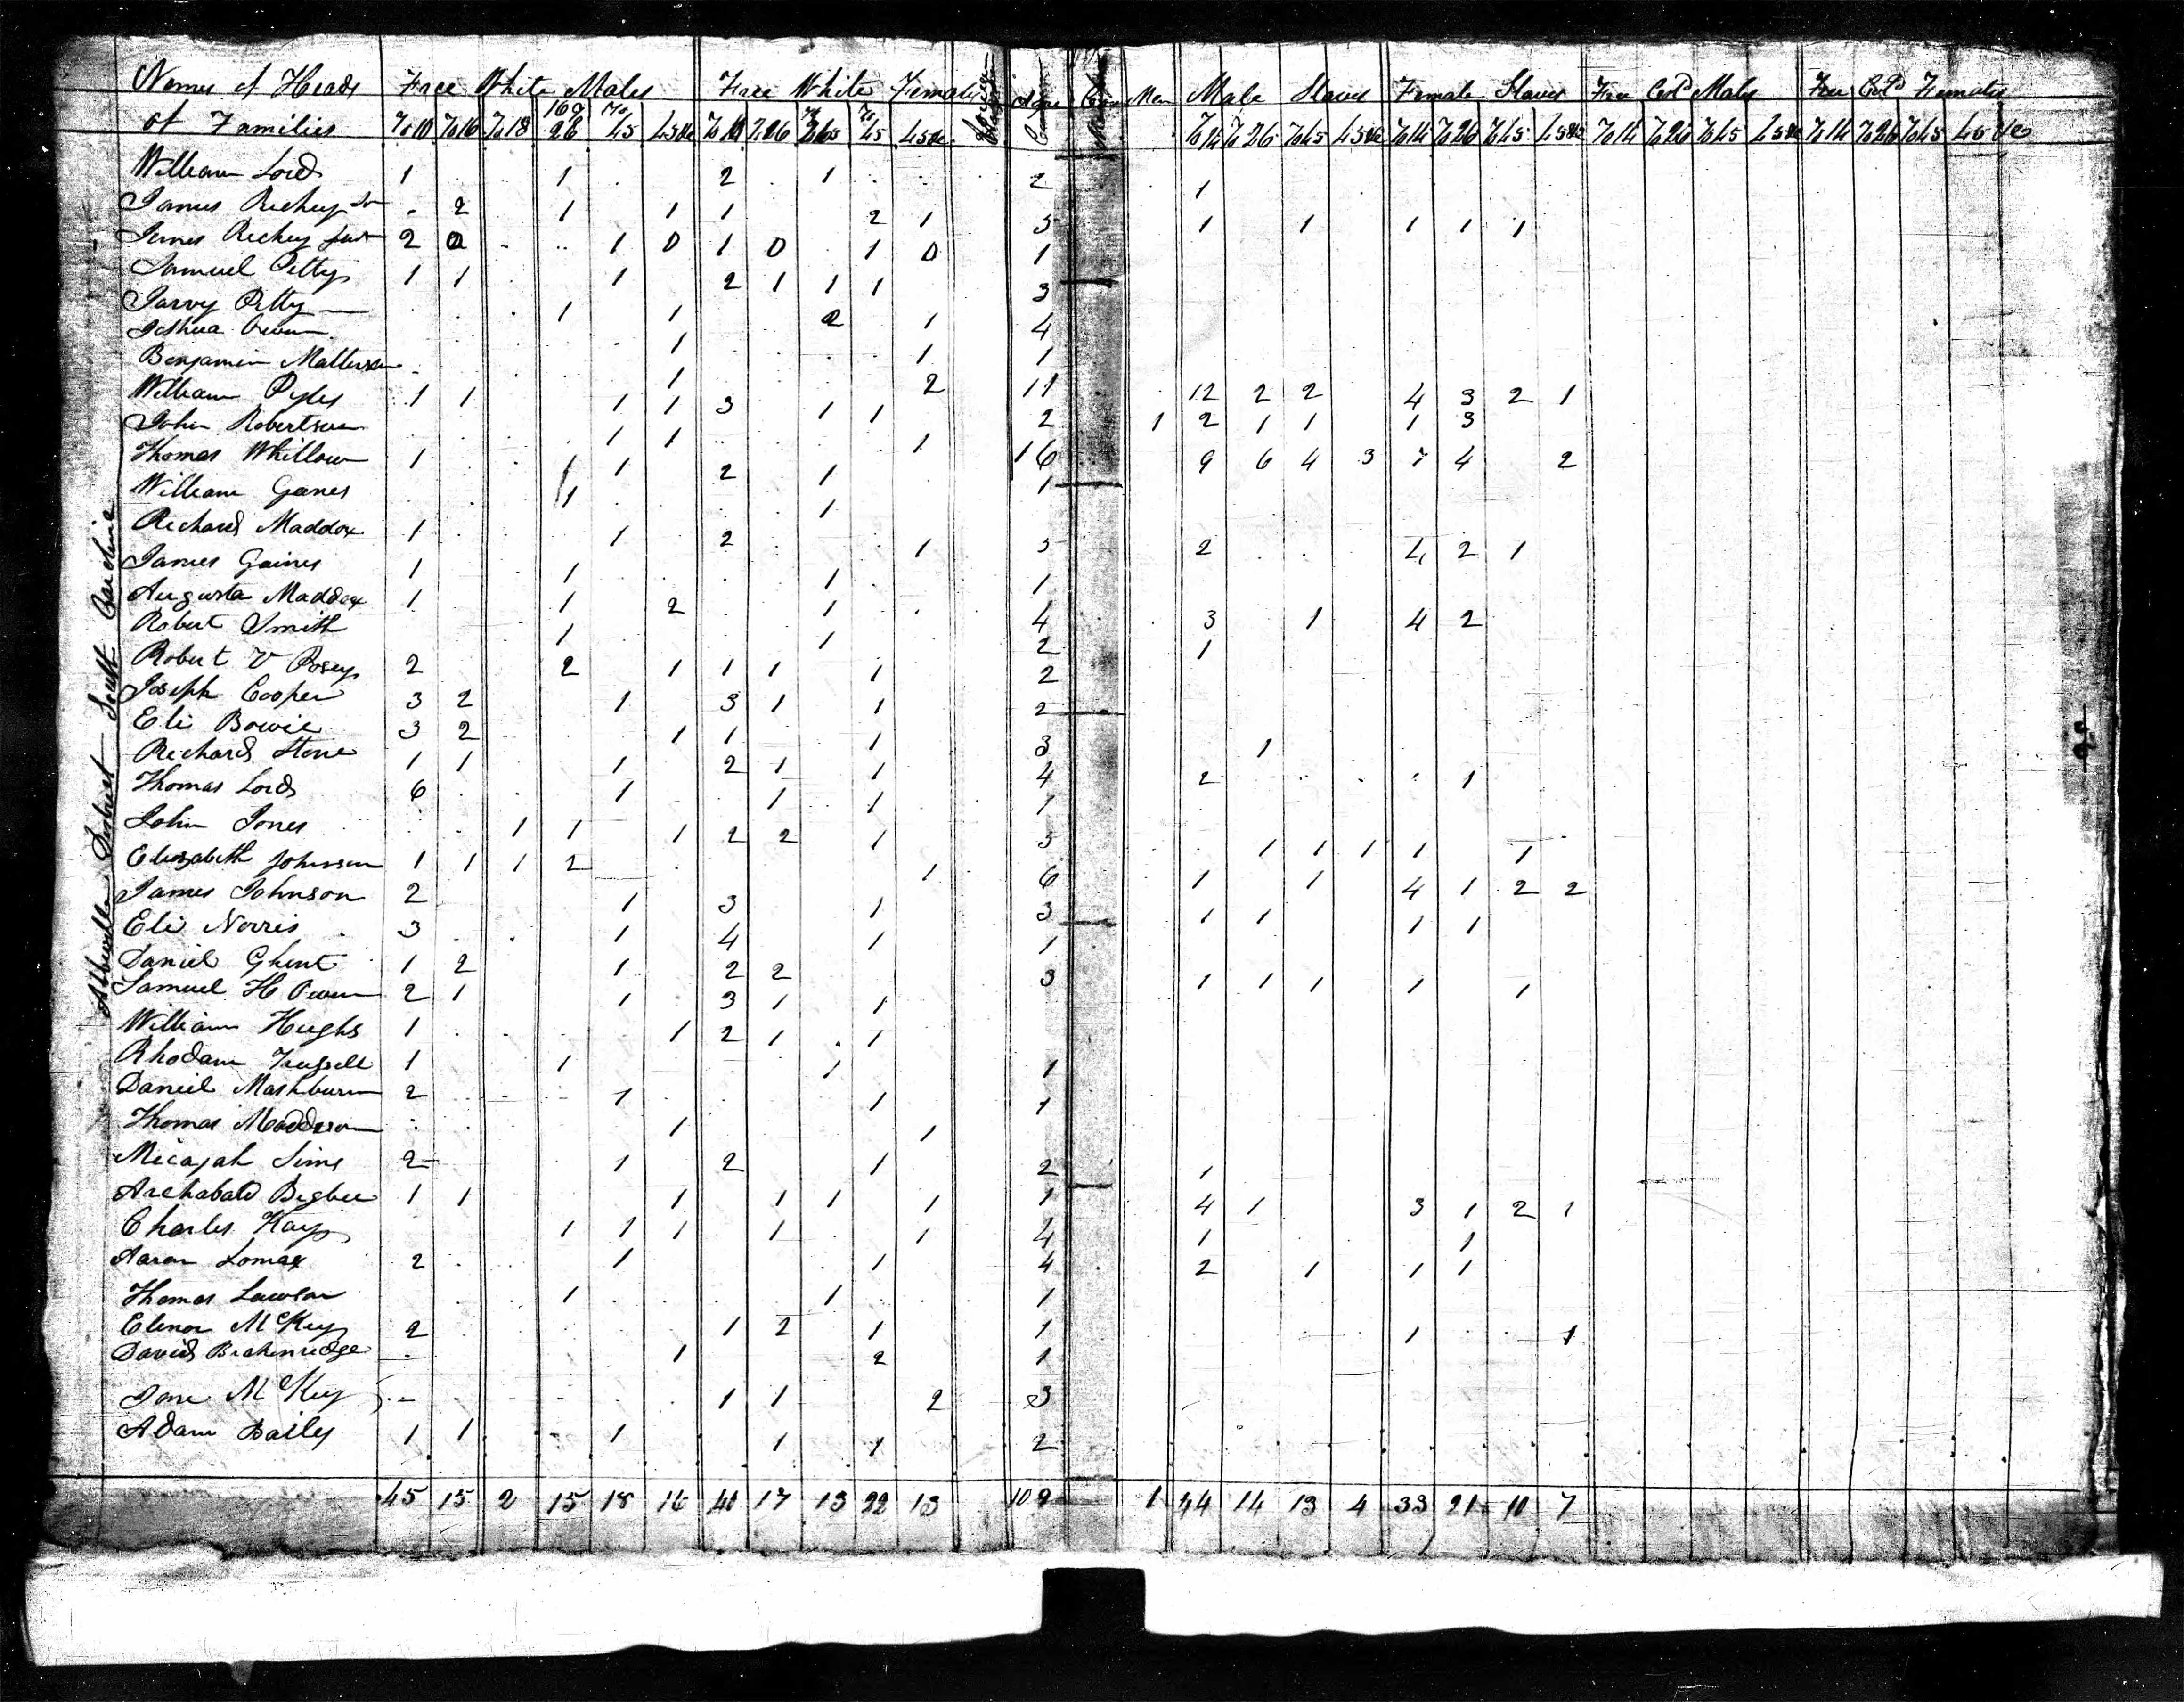 Names of Heads Free White Males Free White Females Foreigners Agri Com Man Male Slaves Female Slaves Free Cold Males Free Cold Females
of Families To 10 To 16 To 18 16 & 26 To 45 45 &c To 10 To 16 To 26 To 45 45 &c To 14 To 26 To 45 45 &c To 14 To 26 To 45 45 &c To 14 To 26 To 45 45 &c To 14 To 26 To 45 45 &c
Abbeville District South Carolina
William Lord 1 1 2 1 2 1
James Richey Sr 2 1 1 1 2 1 5 1 1 1 1 1
James Richey 2 0 1 0 1 0 1 0 1
Samuel Petty 1 1 1 2 1 1 1 3
Jarvy Petty 1 1 2 1 4
Joshua Owen 1 1 1
Benjamin Matterson 1 2 11 12 2 2 4 3 2 1
William Pyles 1 1 1 1 3 1 1 2 1 2 1 1 1 3
John Robertson 1 1 1 16 9 6 4 3 7 4 2
Thomas Whitlow 1 1 1 2 1 1
William Ganes 1 1
Richard Maddox 1 1 2 1 5 2 4 2 1
James Gaines 1 1 1 1
Augusta Maddox 1 1 2 1 4 3 1 4 2
Robert Smith 1 1 2 1
Robert V Posey 2 2 1 1 1 1 2
Joseph Cooper 3 2 1 3 1 1 2
Eli Bowie 3 2 1 1 1 3 1
Richard Stone 1 1 1 2 1 1 4 2 1
Thomas Lord 6 1 1 1 1
John Jones 1 1 1 2 2 1 5 1 1 1 1 1
Elizabeth Johnson 1 1 1 2 1 6 1 1 4 1 2 2
James Johnson 2 1 3 1 3 1 1 1 1
Eli Norris 3 1 4 1 1
Daniel Ghent 1 2 1 2 2 3 1 1 1 1 1
Samuel H Owen 2 1 1 3 1 1
William Hughs 1 1 2 1 1
Rhodam Trussell 1 1 1 1
Daniel Mashburn 2 1 1 1
Thomas Maddison 1 1
Micajah Sims 2 1 2 1 2 1
Archabald Bigbee 1 1 1 1 1 1 1 4 1 3 1 2 1
Charles Kay 1 1 1 1 1 4 1 1
Aaron Lomax 2 1 1 4 2 1 1 1
Thomas Lawson 1 1 1
Elenor McKey 2 1 2 1 1 1 1
David Brakenridge 1 2 1
Jane McKey 1 1 2 3
Adam Bailey 1 1 1 1 1 2
45 15 2 15 18 16 41 17 13 22 13 109 1 44 14 13 4 33 21 10 7